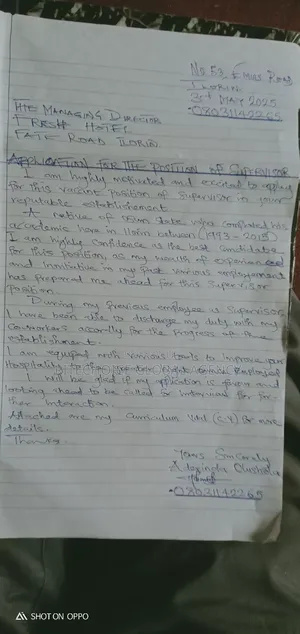 No 52 Emirs Road
Ilorin
3rd May 2025
08031142265
The Managing Director
Fresh Hotel
Fate Road Ilorin.
Application for the Position of Supervisor
I am highly motivated and excited to apply
for this vacant position of Supervisor in your
reputable establishment
A native of Osun State who completed his
academic here in Ilorin between (1993 - 2015)
I am highly confidence as the best candidate
for this position, as my wealth of experienced
and in my past various employment
has prepared me ahead for this Supervisor
position.
During my previous employee as Supervisor
I have been able to discharge my duty with my
coworkers accordly for the progress of the
establishment.
I am equiped with various tools to improve your
Hospitality to the if employed
I will be glad if my application is given and
looking ahead to be called for interview for fur-
ther interaction.
Attached are my Curriculum Vital (C.V) for more
details.
Thanks.
Yours Sincerely
08031142265
SHOT ON OPPO